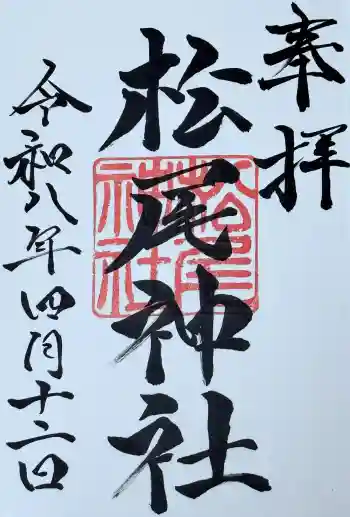 奉拝
松尾神社
松尾神社
令和八年四月十二日